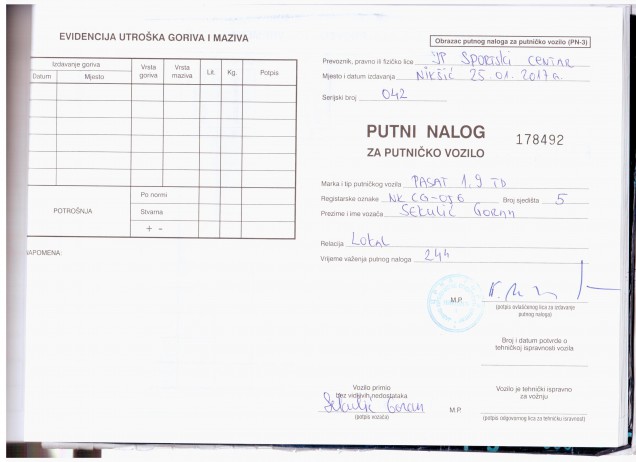 EVIDENCIJA UTROŠKA GORIVA I MAZIVA
Izdavanje goriva
Datum
Mjesto
Vrsta goriva
Vrsta maziva
Lit.
Kg.
Potpis
POTROŠNJA
Po normi
Stvarna
+ -
NAPOMENA:
Obrazac putnog naloga za putničko vozilo (PN-3)
Prevoznik, pravno ili fizičko lice JP SPORTSKI CENTAR
Mjesto i datum izdavanja NIKŠIĆ 25.01.2017 g.
Serijski broj 042
PUTNI NALOG 178492
ZA PUTNIČKO VOZILO
Marka i tip putničkog vozila PASAT 1,9 TD
Registarske oznake NK CG-036 Broj sjedišta 5
Prezime i ime vozača SEKULIĆ GORAN
Relacija LOKAL
Vrijeme važenja putnog naloga 24h
M.P.
(potpis ovlašćenog lica za izdavanje
putnog naloga)
Broj i datum potvrde o
tehničkoj ispravnosti vozila
Vozilo primio
bez vidljivih nedostataka
Sekulić Goran
(potpis vozača)
M.P.
Vozilo je tehnički ispravno
za vožnju
(potpis odgovornog lica za tehničku ispravnost)